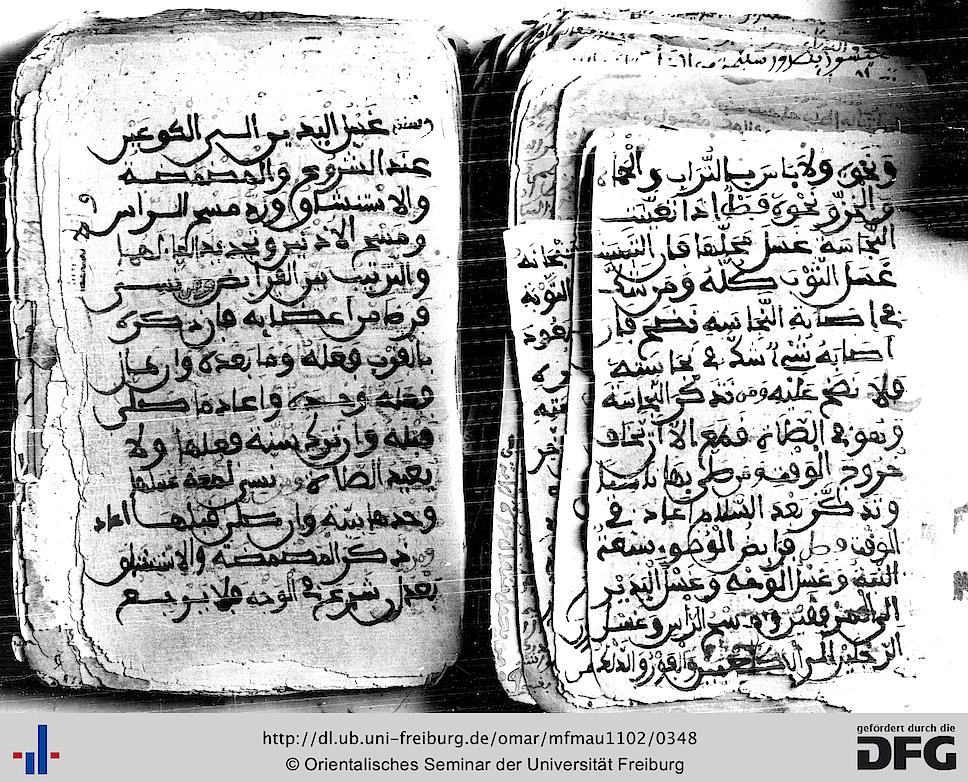 ونحوه ولا باس بالتراب والحماة
والخز ونحوه فصل اذا تعينت
النجاسة غسل محلها فان التبست
غسل الثوب كله ومن شك
في اصابة النجاسة نضح فان
اصابه شيء شك في نجاسته
فلا نضح عليه ومن تذكر النجاسة
وهو في الصلاة قطع الا ان يخاف
خروج الوقت ومن صلى بها ناسيا
وتذكر بعد السلام اعاد في
الوقت فصل فرايض الوضوء سبعة
النية وغسل الوجه وغسل اليدين
الى المرفقين ومسح الراس وغسل
الرجلين الى الكعبين والفور والدلك
وسننه غسل اليدين الى الكوعين
عند الشروع والمضمضة
والاستنشاق ورد مسح الراس
ومسح الاذنين وتجديد الماء لهما
والترتيب بين الفرايض ومن نسي
فرضا من اعضائه فان ذكره
بالقرب فعله وما بعده وان طال
فعله وحده واعاد ما صلى
قبله وان ترك سنة فعلها ولا
يعيد الصلاة ومن نسي لمعة غسلها
وحدها بنية وان صلى قبلها اعاد
ومن ذكر المضمضة والاستنشاق
بعد ان شرع في الوجه فلا يرجع
http://dl.ub.uni-freiburg.de/omar/mfmau1102/0348
© Orientalisches Seminar der Universität Freiburg
gefördert durch die
DFG